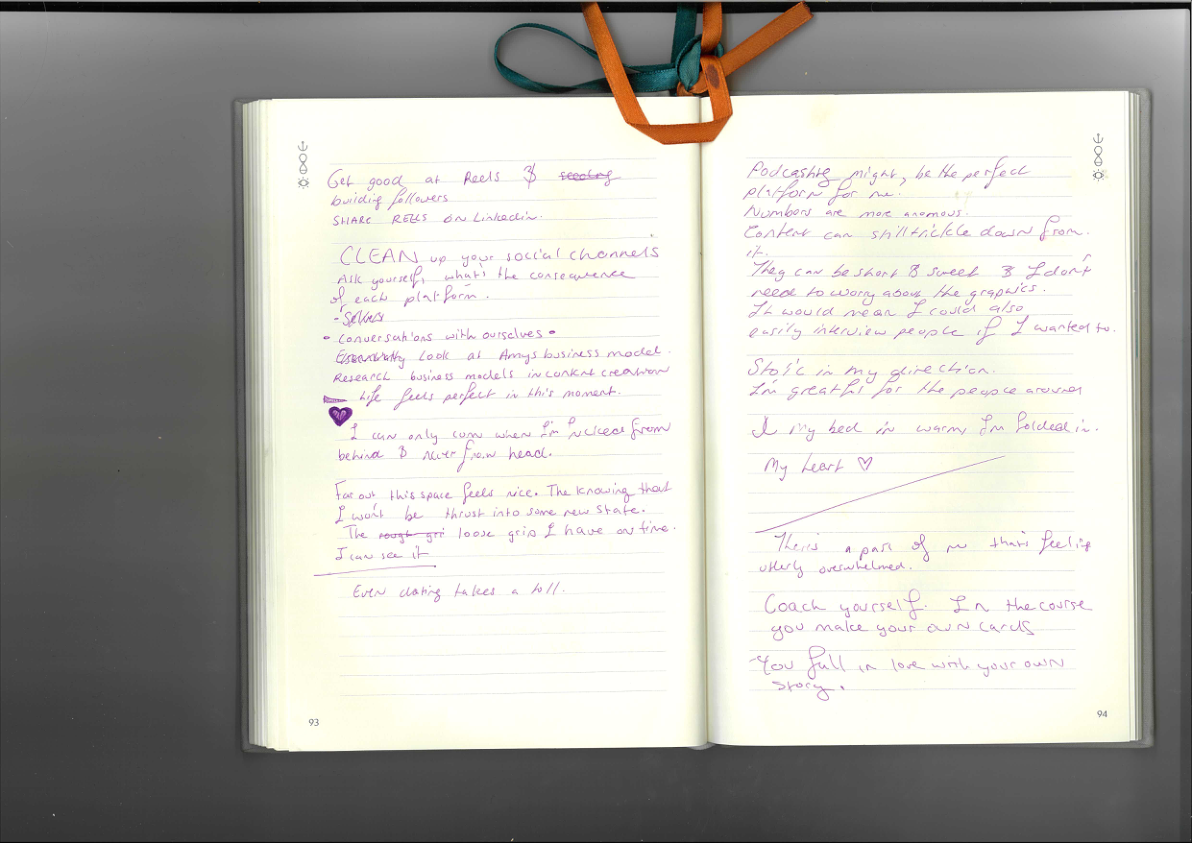 Get good at Reels & seeding
building followers
SHARE REELS ON Linkedin.
CLEAN up your social channels
Ask yourself, what's the consequence
of each platform.
- Selves
• Conversations with ourselves •
Look at Amys business model.
Research business models in content creation
Life feels perfect in this moment.
I can only cum when I'm fucked from
behind & never from head.
Far out this space feels nice. The knowing that
I won't be thrust into some new state.
The rough gri loose grip I have on time.
I can see it
Even dating takes a toll.
93
Podcasting might, be the perfect
platform for me.
Numbers are more anomous.
Content can still trickle down from
it.
They can be short & sweet & I don't
need to worry about the graphics.
It would mean I could also
easily interview people if I wanted to.
Stoic in my direction.
I'm greatful for the people around
I my bed in warm, I'm folded in.
My heart ♡
There's a part of me that's feeling
utterly overwhelmed.
Coach yourself. In the course
you make your own cards
You fall in love with your own
story.
94